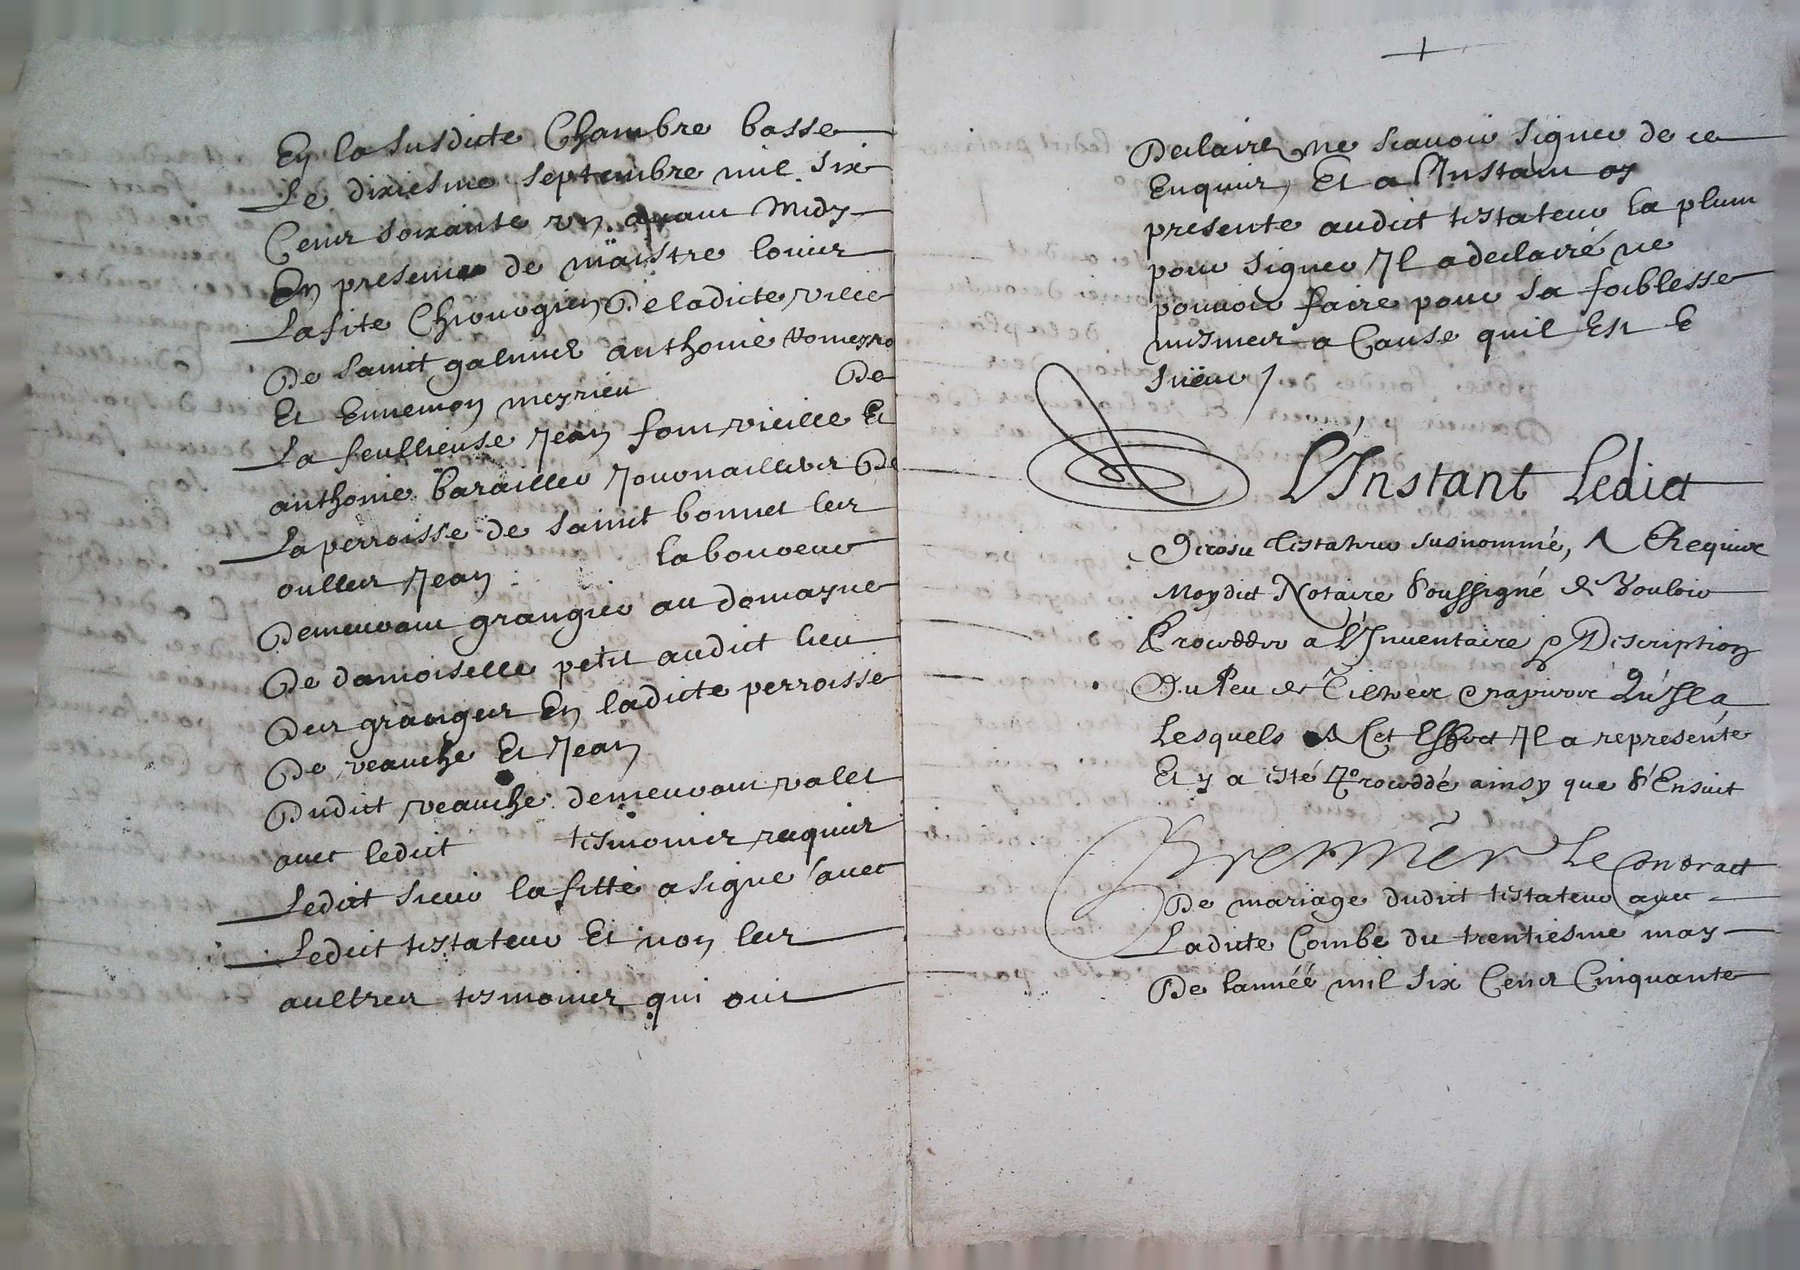 En la susdicte Chambre basse
Le dixiesme septembre mil six
Cens soixante un avant midy
En presence de maistre louis
Lafite Chirurgien De ladicte ville
De sainct galmier anthoine
Et Ennemon meyrieu De
La feullieuse Jean fontvieille Et
anthoine barailler Journailliers De
La perroisse de sainct bonnet les
oulles Jean laboureur
Demeurant grangier au domayne
De damoiselle petit audict lieu
Des granges En ladicte perroisse
De veauche Et Jean
Dudict veauche demeurant valet
avec ledict tesmoins requis
Ledict sieur lafitte a signé avec
Ledict testateur Et non les
aultres tesmoins qui ont
Declairé ne scavoir signer de ce
Enquis, Et a l'Instant ay
presenté audict testateur la plume
pour signer Il a declairé ne
pouvoir faire pour sa foiblesse
mesmes a Cause quil Est E
L'Instant Ledict
testateur susnommé, A Requis
Moydict Notaire Soussigné de Vouloir
Proceder a l'Inventaire & Description
Du Peu de Tiltres & papiers Qu'Il a
Lesquels A Cet Effect Il a representé
Et y a esté Procedé ainsy que s'Ensuit
Premier Le Contract
De mariage dudict testateur avec
Ladicte Combe du trentiesme may
De lannéé mil six Cens Cinquante